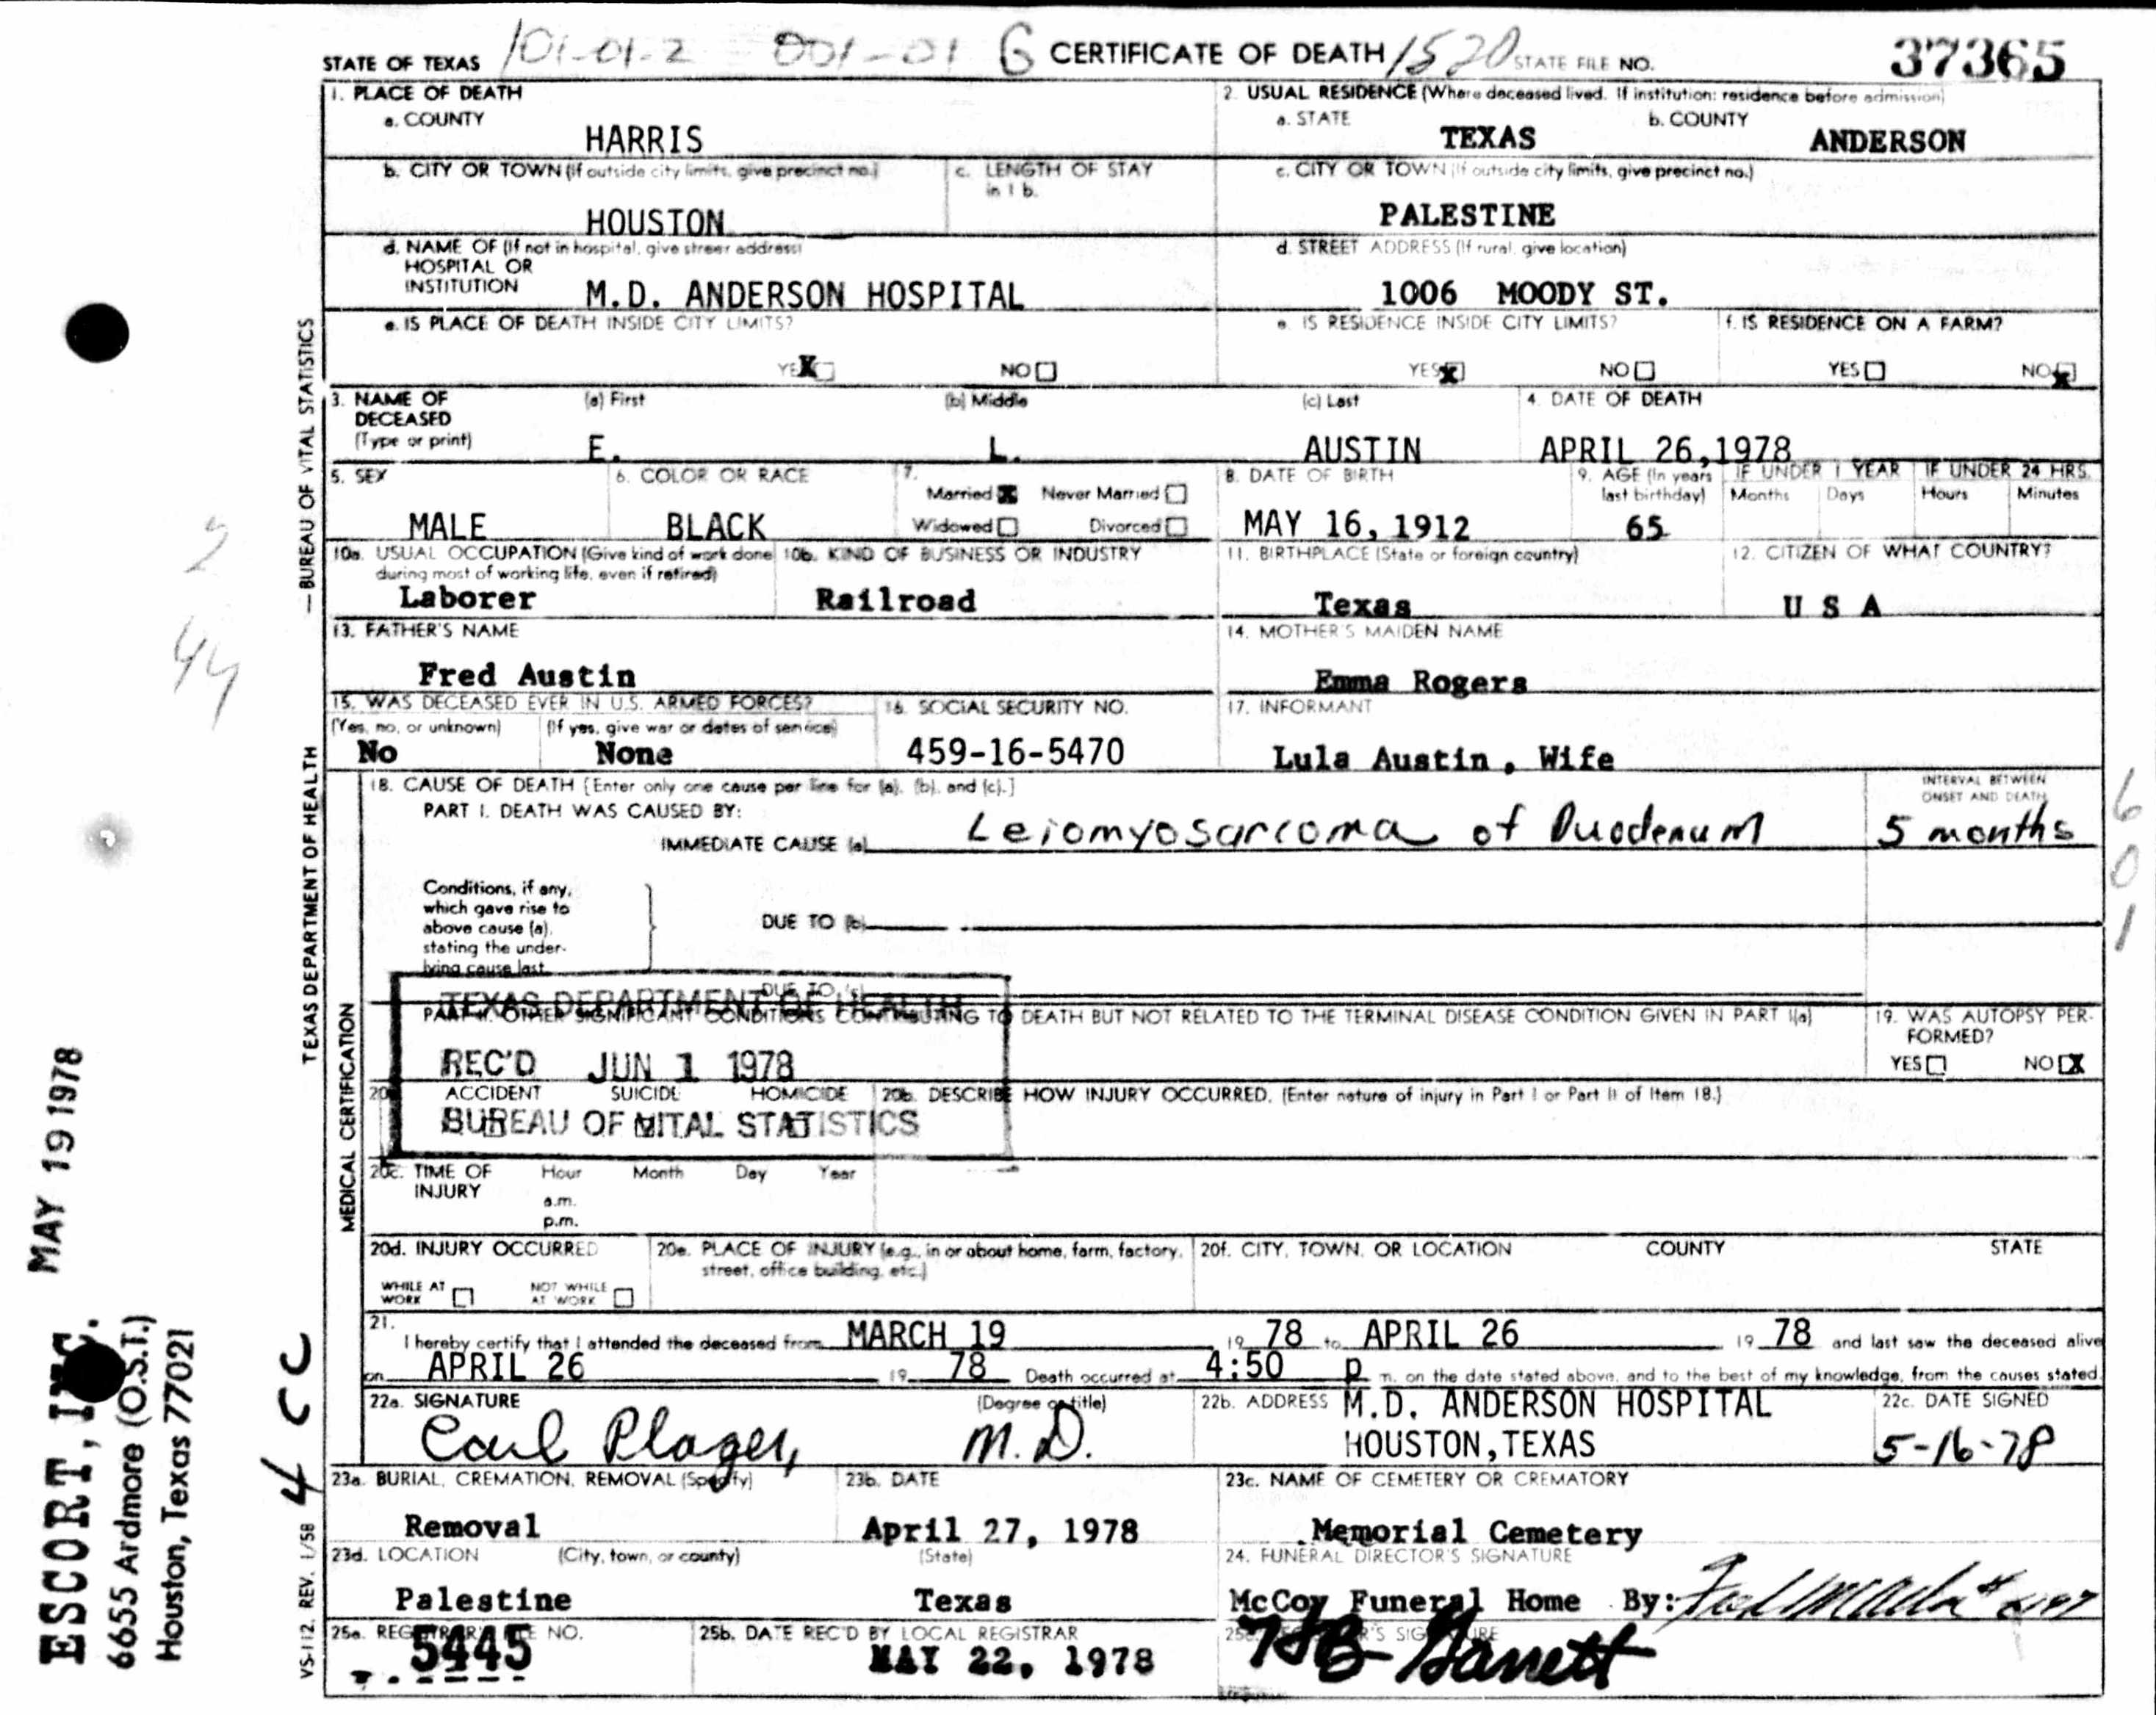 STATE OF TEXAS 101-01-2 001-01 G CERTIFICATE OF DEATH 1520 STATE FILE NO. 37365
1. PLACE OF DEATH
a. COUNTY
HARRIS
2. USUAL RESIDENCE (Where deceased lived. If institution: residence before admission)
a. STATE b. COUNTY
TEXAS ANDERSON
b. CITY OR TOWN (If outside city limits, give precinct no.)
HOUSTON
c. LENGTH OF STAY
in 1 b.
c. CITY OR TOWN (If outside city limits, give precinct no.)
PALESTINE
d. NAME OF (If not in hospital, give street address)
HOSPITAL OR
INSTITUTION M.D. ANDERSON HOSPITAL
d. STREET ADDRESS (If rural, give location)
1006 MOODY ST.
e. IS PLACE OF DEATH INSIDE CITY LIMITS?
YES X NO
e. IS RESIDENCE INSIDE CITY LIMITS?
YES X NO
f. IS RESIDENCE ON A FARM?
YES NO X
3. NAME OF
DECEASED
(Type or print)
(a) First (b) Middle (c) Last
E. L. AUSTIN
4. DATE OF DEATH
APRIL 26,1978
5. SEX
MALE
6. COLOR OR RACE
BLACK
7.
Married X Never Married
Widowed Divorced
8. DATE OF BIRTH
MAY 16, 1912
9. AGE (In years
last birthday)
65
IF UNDER 1 YEAR
Months Days
IF UNDER 24 HRS.
Hours Minutes
10a. USUAL OCCUPATION (Give kind of work done
during most of working life, even if retired)
Laborer
10b. KIND OF BUSINESS OR INDUSTRY
Railroad
11. BIRTHPLACE (State or foreign country)
Texas
12. CITIZEN OF WHAT COUNTRY?
U S A
13. FATHER'S NAME
Fred Austin
14. MOTHER'S MAIDEN NAME
Emma Rogers
15. WAS DECEASED EVER IN U.S. ARMED FORCES?
(Yes, no, or unknown) (If yes, give war or dates of service)
No None
16. SOCIAL SECURITY NO.
459-16-5470
17. INFORMANT
Lula Austin, Wife
18. CAUSE OF DEATH [Enter only one cause per line for (a), (b), and (c).]
PART I. DEATH WAS CAUSED BY:
IMMEDIATE CAUSE (a) Leiomyosarcoma of Duodenum
INTERVAL BETWEEN
ONSET AND DEATH
5 months
Conditions, if any,
which gave rise to
above cause (a),
stating the under-
lying cause last
DUE TO (b)
DUE TO (c)
PART II. OTHER SIGNIFICANT CONDITIONS CONTRIBUTING TO DEATH BUT NOT RELATED TO THE TERMINAL DISEASE CONDITION GIVEN IN PART I(a)
19. WAS AUTOPSY PER-
FORMED?
YES NO X
TEXAS DEPARTMENT OF HEALTH
REC'D JUN 1 1978
BUREAU OF VITAL STATISTICS
20a. ACCIDENT SUICIDE HOMICIDE
20b. DESCRIBE HOW INJURY OCCURRED. (Enter nature of injury in Part I or Part II of Item 18.)
20c. TIME OF
INJURY
Hour Month Day Year
a.m.
p.m.
20d. INJURY OCCURRED
WHILE AT
WORK
NOT WHILE
AT WORK
20e. PLACE OF INJURY (e.g., in or about home, farm, factory,
street, office building, etc.)
20f. CITY, TOWN, OR LOCATION COUNTY STATE
21.
I hereby certify that I attended the deceased from MARCH 19 19 78 to APRIL 26 19 78 and last saw the deceased alive
on APRIL 26 19 78 Death occurred at 4:50 p m. on the date stated above, and to the best of my knowledge, from the causes stated.
22a. SIGNATURE (Degree or title)
Carl Plager, M.D.
22b. ADDRESS M.D. ANDERSON HOSPITAL
HOUSTON,TEXAS
22c. DATE SIGNED
5-16-78
23a. BURIAL, CREMATION, REMOVAL (Specify)
Removal
23b. DATE
April 27, 1978
23c. NAME OF CEMETERY OR CREMATORY
Memorial Cemetery
23d. LOCATION (City, town, or county) (State)
Palestine Texas
24. FUNERAL DIRECTOR'S SIGNATURE
McCoy Funeral Home By:
25a. REGISTRAR'S FILE NO.
5445
25b. DATE REC'D BY LOCAL REGISTRAR
MAY 22, 1978
25c. REGISTRAR'S SIGNATURE
HB Garrett
TEXAS DEPARTMENT OF HEALTH — BUREAU OF VITAL STATISTICS
MEDICAL CERTIFICATION
VS-112 REV. 1/58
4 CC
MAY 19 1978
ESCORT, INC.
6655 Ardmore (O.S.T.)
Houston, Texas 77021
2
44
6
0
1